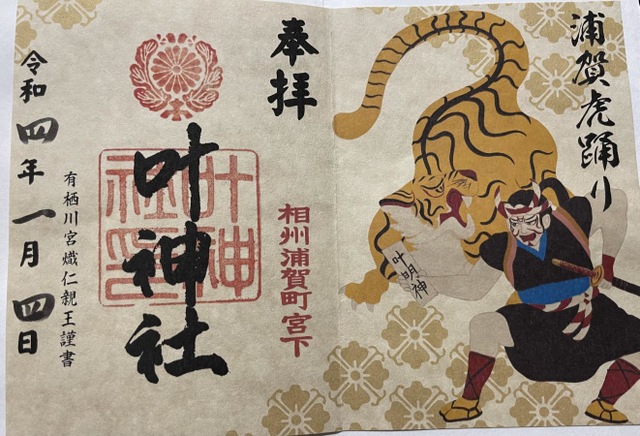 浦賀虎踊り
叶明神
奉拝
相州浦賀町宮下
叶神社
有栖川宮熾仁親王謹書
令和四年一月四日